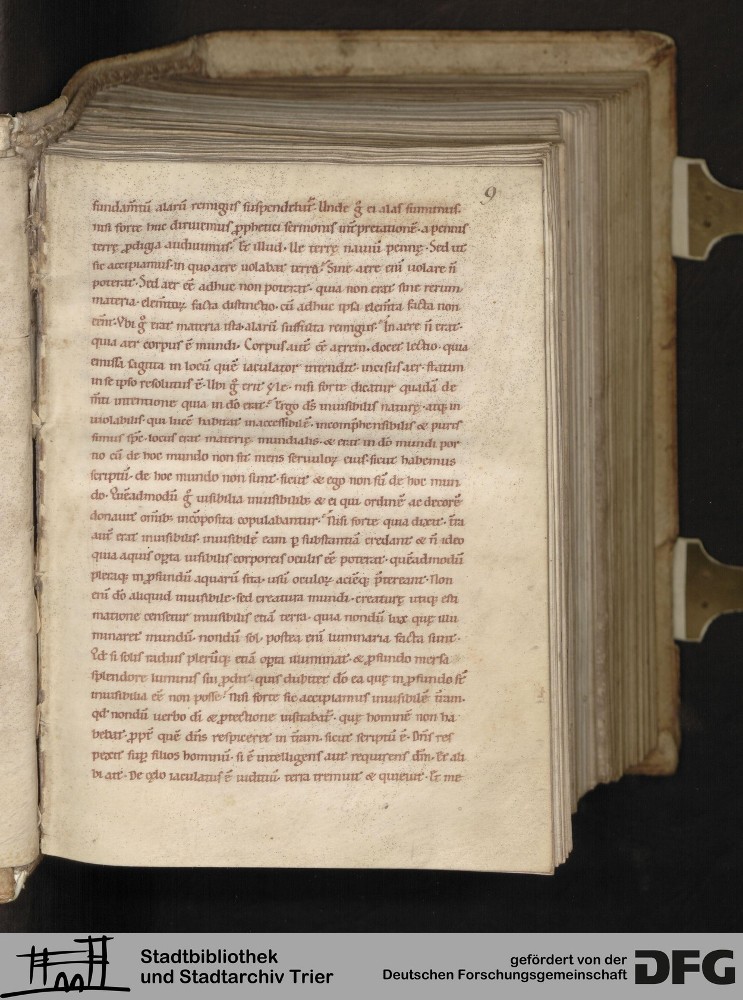 9
fundam̅tu̅ alaru̅ remigiis suspendetur᷑. Unde g̊ ei alas sumimus.
nisi forte huc diriuemus ꝓphetici sermonis int̅pretatione̅. a pennis
terrę ꝓdigia audiuimus. Et illud. Ue terrę nauiu̅ pennę. Sed ut
sic accipiamus. in quo aere uolabat terra? Sine aere eni̅ uolare n̅
poterat. Sed aer e̅e̅ adhuc non poterat. quia non erat sine rerum
materia. elem̅toꝝ facta distinctio. cu̅ adhuc ipsa elem̅ta facta non
e̅e̅nt. Vbi g̊ erat materia ista. alaru̅ suffulta remigiis? In aere n̅ erat.
quia aer corpus e̅ mundi. Corpus aut̅ e̅e̅ aerem. docet lectio. quia
emissa sagitta in locu̅ que̅ iaculator intendit. incisus aer. statim
in se ipso resolutus e̅. Ubi g̊ erat yle. nisi forte dicatur quada̅ de
m̅ti intentione quia in d̅o erat? Ergo d̅s inuisibilis naturę. atq; in
uiolabilis. qui luce̅ habitat inaccessibile̅. incomp̅hensibilis & puris
simus sp̅c. locus erat materię mundialis. & erat in d̅o mundi por
tio cu̅ de hoc mundo non sit mens seruuloꝝ eius. sicut habemus
scriptu̅. de hoc mundo non sunt. sicut & ego non su̅ de hoc mun
do. Que̅admodu̅ g̊ uisibilia inuisibilib; & ei qui ordine̅ ac decore̅
donauit om̅ib; inco̅posita copulabantur? Nisi forte quia dixit. t̅ra
aut̅ erat inuisibilis. inuisibile̅ eam ꝑ substantia̅ credant & n̅ ideo
quia aquis opta uisibilis corporeis oculis e̅e̅ poterat. que̅admodu̅
pleraq; in ꝓfundu̅ aquaru̅ sita. uisu̅ oculoꝝ acie̅q; p̅tereant. Non
eni̅ d̅o aliquid inuisibile. sed creatura mundi. creaturę utiq; esti
matione censetur inuisibilis etia̅ terra. quia nondu̅ lux quę illu
minaret mundu̅. nondu̅ sol. postea eni̅ luminaria facta sunt.
Qd̅ si solis radius pleru̅q; etia̅ opta illuminat. & ꝓfundo mersa
splendore luminis sui ꝓdit. quis dubitet d̅o ea quę in ꝓfundo s̅t
inuisibilia e̅e̅ non posse? Nisi forte sic accipiamus inuisibile̅ t̅ram.
qd̅ nondu̅ uerbo d̅i & ꝓtectione uisitabat᷑. quę homine̅ non ha
bebat. ꝓpt̅ que̅ d̅ns respiceret in t̅ram. sicut scriptu̅ e̅. D̅ns res
pexit sup̅ filios hominu̅. si e̅ intelligens aut requirens d̅m. Et ali
bi ait. De cęlo iaculatus e̅ iuditiu̅. terra tremuit & quieuit. Et me
Stadtbibliothek
und Stadtarchiv Trier
gefördert von der
Deutschen Forschungsgemeinschaft
DFG